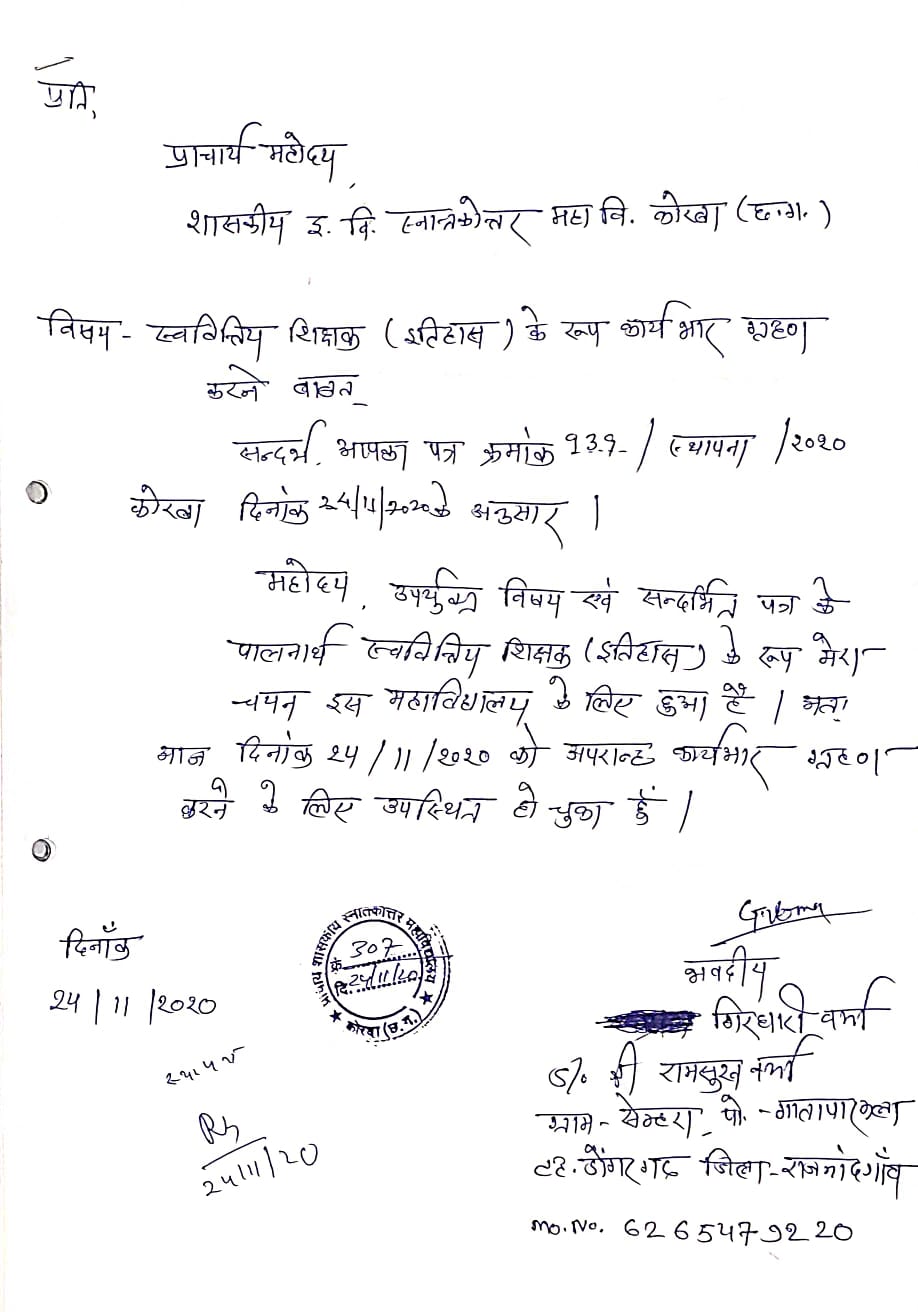 प्रति,
प्राचार्य महोदय,
शासकीय इ. वि. स्नातकोत्तर महा वि. कोरबा (छ.ग.)
विषय - स्ववित्तिय शिक्षक (इतिहास) के रूप कार्य भार ग्रहण
करने बावत_
सन्दर्भ. आपका पत्र क्रमांक 939-/ स्थापना /2020
कोरबा दिनांक 24/11/2020 के अनुसार ।
महोदय, उपर्युक्त विषय एवं सन्दर्भित पत्र के
पालनार्थ स्ववित्तिय शिक्षक (इतिहास) के रूप मेरा
चयन इस महाविद्यालय के लिए हुआ है । अतः
आज दिनांक 24/11/2020 को अपरान्ह कार्यभार ग्रहण
करने के लिए उपस्थित हो चुका हूँ ।
भवदीय
गिरधारी वर्मा
S/o श्री रामसुख वर्मा
ग्राम - सेम्हरा, पो. - गातापारकला
तह. डोंगरगढ़ जिला - राजनांदगाँव
mo. No. 6265479220
दिनाँक
24/11/2020
शासकीय स्नातकोत्तर महाविद्यालय
क्रं. 307
दि. 24/11/20
कोरबा (छ.ग.)
24/11/20